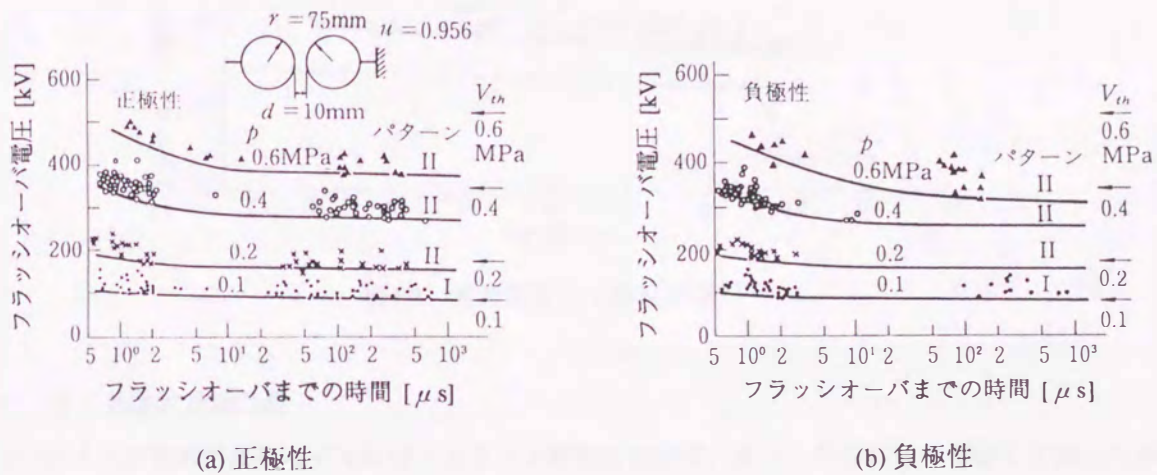 r = 75mm
u = 0.956
d = 10mm
フラッシオーバ電圧 [kV]
600
400
200
0
正極性
p
パターン
V_th
0.6
MPa
0.4
0.2
0.1
0.6MPa
II
0.4
II
0.2
II
0.1
I
5 10⁰ 2 5 10¹ 2 5 10² 2 5 10³
フラッシオーバまでの時間 [μs]
(a) 正極性
フラッシオーバ電圧 [kV]
600
400
200
0
負極性
p
パターン
V_th
0.6
MPa
0.4
0.2
0.1
0.6MPa
II
0.4
II
0.2
II
0.1
I
5 10⁰ 2 5 10¹ 2 5 10² 2 5 10³
フラッシオーバまでの時間 [μs]
(b) 負極性